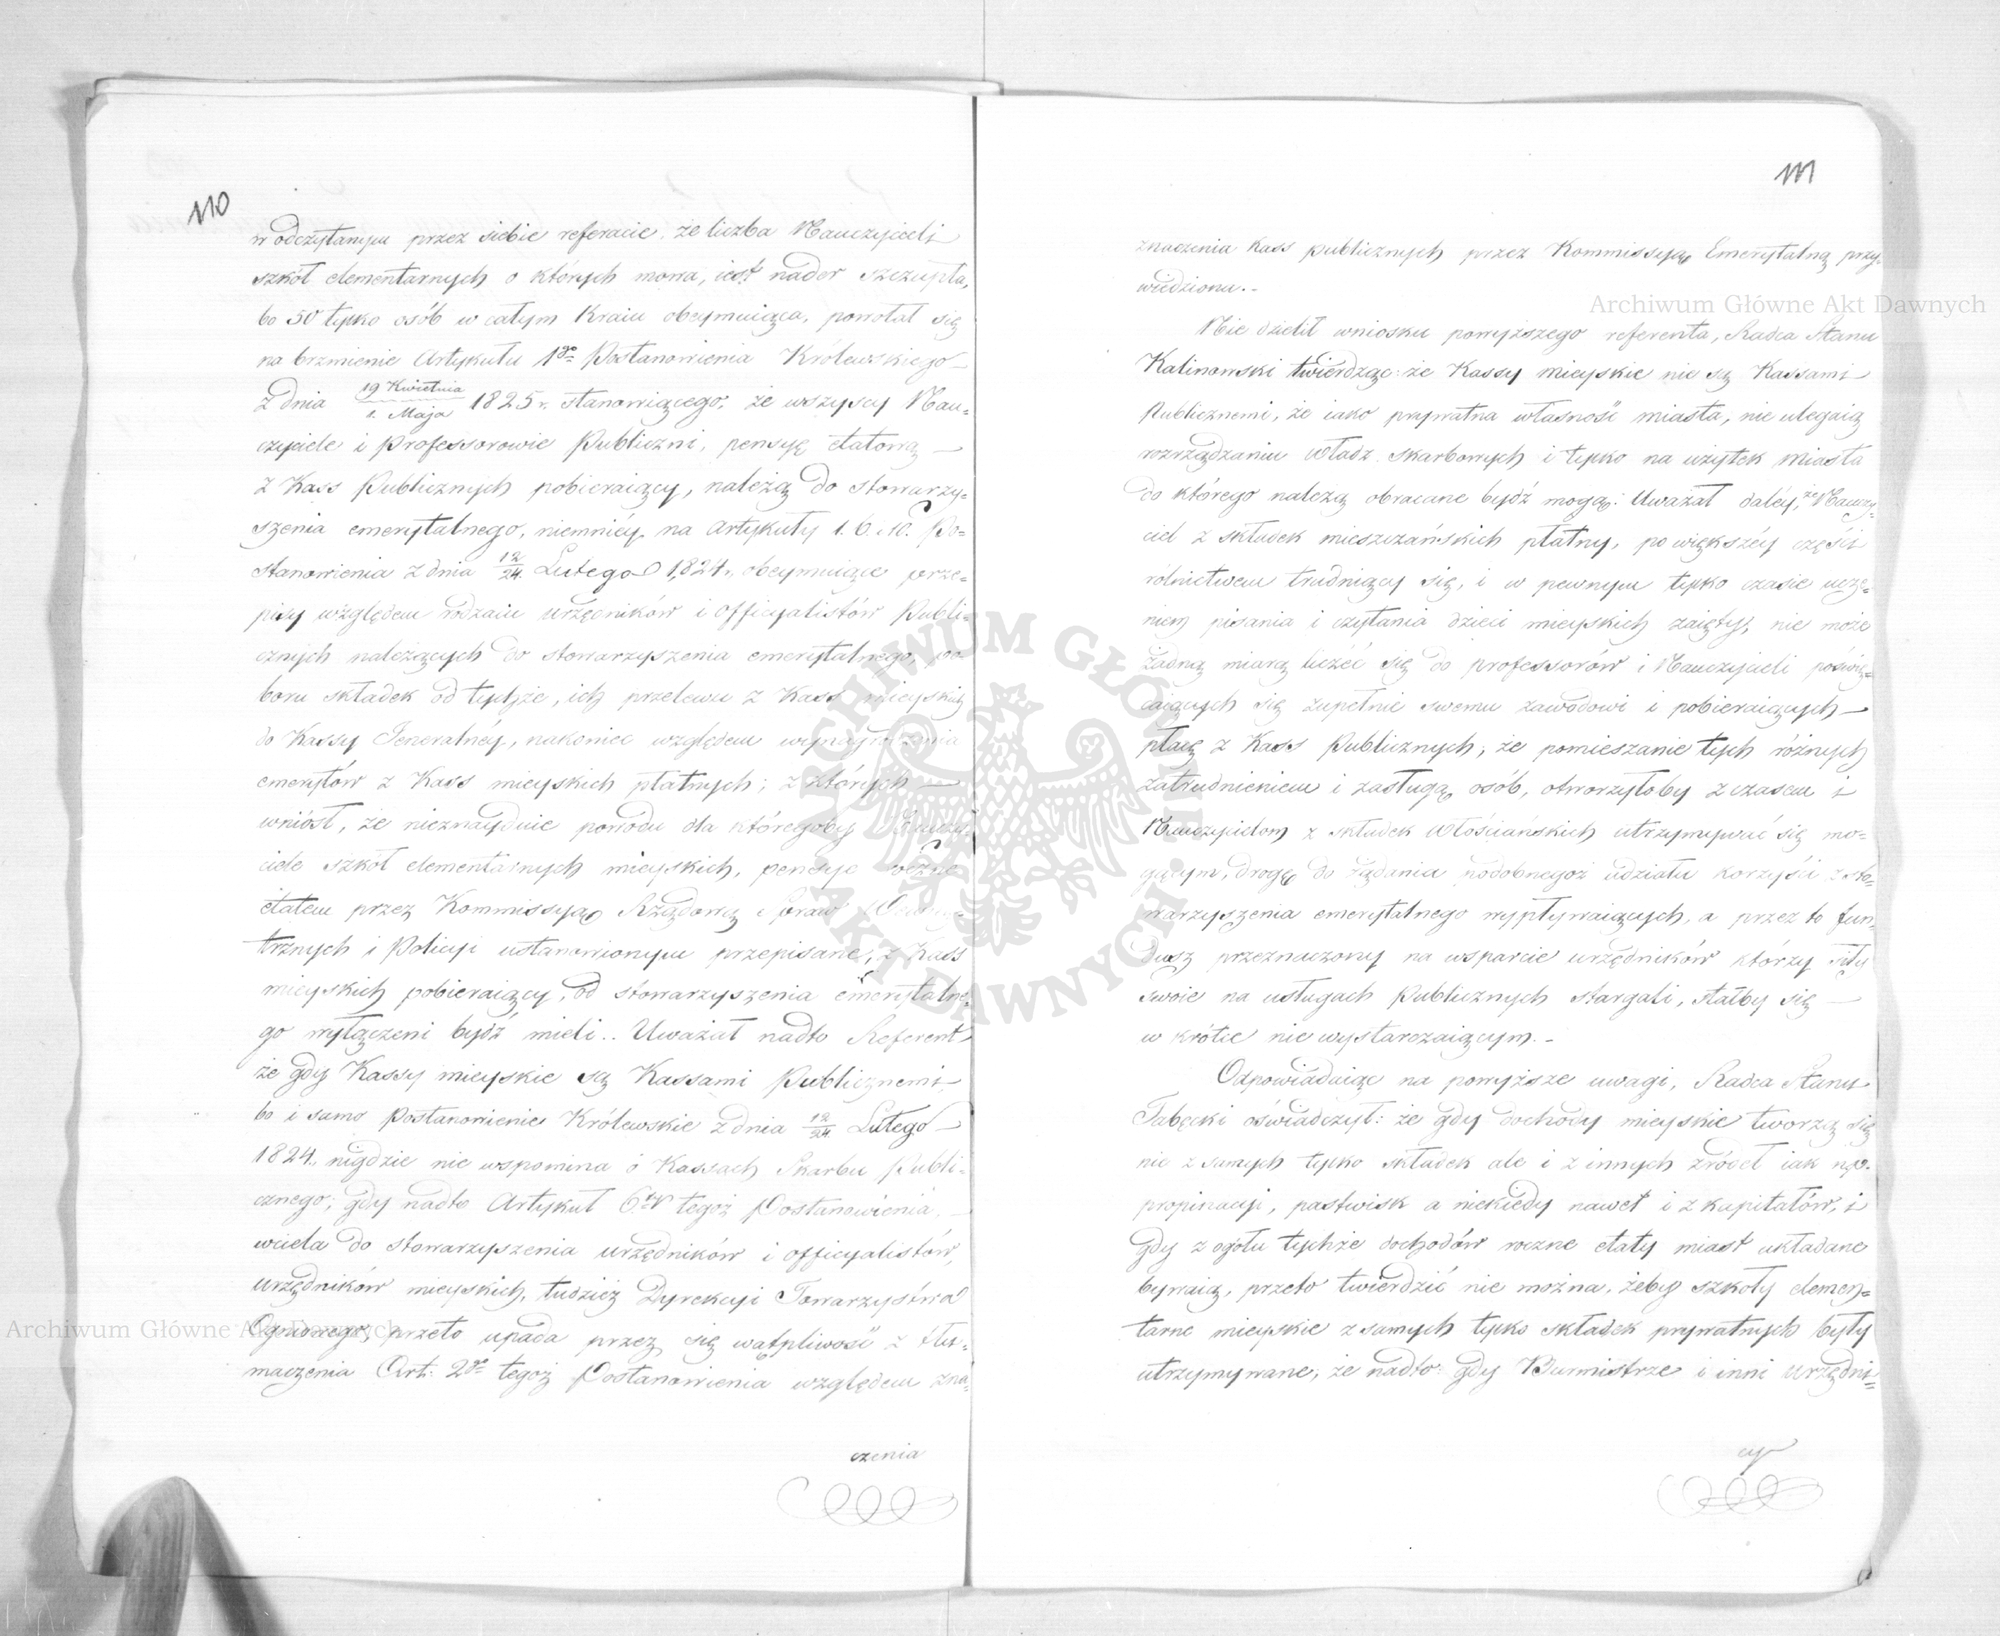 110
w odczytanym przez siebie referacie, że liczba Nauczycieli
szkół elementarnych o których mowa, iest nader szczupła,
bo 50 tylko osób w całym Kraiu obeymuiąca, powołał się
na brzmienie Artykułu 1go Postanowienia Królewskiego
z dnia 19 Kwietnia / 1. Maja 1825 r. stanowiącego, że wszyscy Nau-
czyciele i Professorowie Publiczni, pensyę etatową
z Kass Publicznych pobieraiący, należą do stowarzy-
szenia emerytalnego, niemniéy na Artykuły 1. 6. i 10. Po-
stanowienia z dnia 12/24 Lutego 1824 r. obeymuiące prze-
pisy względem rodzaiu urzędników i officyalistów Publi-
cznych należących do stowarzyszenia emerytalnego, po-
boru składek od tychże, ich przelewu z Kass mieyskich
do Kassy Jeneralnéy, nakoniec względem wynagrodzenia
emerytów z Kass mieyskich płatnych; z których
wniósł, że nieznayduie powodu dla któregoby Nauczy-
ciele szkół elementarnych mieyskich, pensye roczne
etatem przez Kommissyą Rządową Spraw Wewnę-
trznych i Policyi ustanowionym przepisane, z Kass
mieyskich pobieraiący, od stowarzyszenia emerytalne-
go wyłączeni bydź mieli.. Uważał nadto Referent
że gdy Kassy mieyskie są Kassami Publicznemi
bo i samo Postanowienie Królewskie z dnia 12/24 Lutego
1824., nigdzie nie wspomina o Kassach Skarbu Publi-
cznego; gdy nadto Artykuł 6ty tegoż Postanowienia,
wciela do stowarzyszenia urzędników i officyalistów,
urzędników mieyskich, tudzież Dyrekcyi Towarzystwa
Ogniowego, przeto upada przez się wątpliwość z tłu-
maczenia Art: 2go tegoż Postanowienia względem zna-
czenia
111
znaczenia Kass publicznych przez Kommissyą Emerytalną przy-
wiedziona.-
Nie dzielił wniosku powyższego referenta, Radca Stanu
Kalinowski twierdząc: że Kassy mieyskie nie są Kassami
Publicznemi, że iako prywatna własność miasta, nie ulegaią
rozrządzaniu Władz skarbowych i tylko na użytek miasta
do którego należą obracane bydź mogą: Uważał daléy, że Nauczy-
ciel z składek mieszczańskich płatny, po większéy części
rolnictwem trudniący się, i w pewnym tylko czasie ucze-
niem pisania i czytania dzieci mieyskich zaięty, nie może
żadną miarą liczyć się do professorów i Nauczycieli poświę-
caiących się zupełnie swemu zawodowi i pobieraiących
płacę z Kass Publicznych; że pomieszanie tych różnych
zatrudnieniem i zasługą osób, otworzyłoby z czasem i
Nauczycielom z składek Włościańskich utrzymywać się mo-
gącym, drogę do żądania podobnegoż udziału korzyści z sto-
warzyszenia emerytalnego wypływaiących, a przez to fun-
dusz przeznaczony na wsparcie urzędników którzy siły
swoie na usługach Publicznych stargali, stałby się
w krótce nie wystarczaiącym.-
Odpowiadaiąc na powyższe uwagi, Radca Stanu
Tabęcki oświadczył: że gdy dochody mieyskie tworzą się
nie z samych tylko składek ale i z innych źródeł iak np.
propinacyi, pastwisk a niekiedy nawet i z kapitałów, i
gdy z ogółu tychże dochodów roczne etaty miast układane
bywaią, przeto twierdzić nie można, żeby szkoły elemen-
tarne mieyskie z samych tylko składek prywatnych były
utrzymywane; że nadto gdy Burmistrze i inni urzędni-
cy
Archiwum Główne Akt Dawnych
Archiwum Główne Akt Dawnych
ARCHIWUM GŁÓWNE AKT DAWNYCH